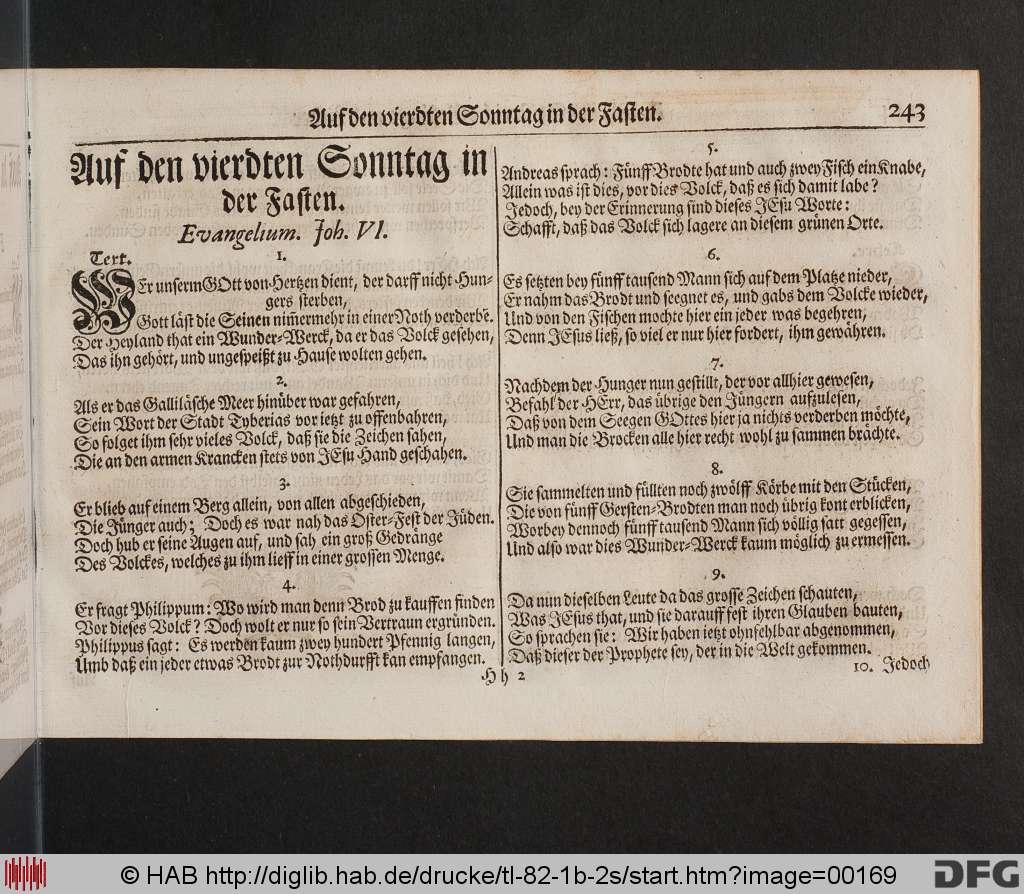 Auf den vierdten Sonntag in der Fasten.
243
Auf den vierdten Sonntag in
der Fasten.
Evangelium. Joh. VI.
Text.
1.
WEr unserm GOtt von Hertzen dient, der darff nicht Hun-
gers sterben,
Gott läst die Seinen nim̃ermehr in einer Noth verderbẽ.
Der Heyland that ein Wunder-Werck, da er das Volck gesehen,
Das ihn gehört, und ungespeißt zu Hause wolten gehen.
2.
Als er das Galliläsche Meer hinüber war gefahren,
Sein Wort der Stadt Tyberias vor ietzt zu offenbahren,
So folget ihm sehr vieles Volck, daß sie die Zeichen sahen,
Die an den armen Krancken stets von JEsu Hand geschahen.
3.
Er blieb auf einem Berg allein, von allen abgeschieden,
Die Jünger auch; Doch es war nah das Oster-Fest der Jüden.
Doch hub er seine Augen auf, und sah ein groß Gedränge
Des Volckes, welches zu ihm lieff in einer grossen Menge.
4.
Er fragt Philippum: Wo wird man denn Brod zu kauffen finden
Vor dieses Volck? Doch wolt er nur so sein Vertraun ergründen.
Philippus sagt: Es werden kaum zwey hundert Pfennig langen,
Umb daß ein jeder etwas Brodt zur Nothdurfft kan empfangen.
Hh 2
5.
Andreas sprach: Fünff Brodte hat und auch zwey Fisch ein Knabe,
Allein was ist dies, vor dies Volck, daß es sich damit labe?
Jedoch, bey der Erinnerung sind dieses JEsu Worte:
Schafft, daß das Volck sich lagere an diesem grünen Orte.
6.
Es setzten bey fünff tausend Mann sich auf dem Platze nieder,
Er nahm das Brodt und seegnet es, und gabs dem Volcke wieder,
Und von den Fischen mochte hier ein jeder was begehren,
Denn JEsus ließ, so viel er nur hier fordert, ihm gewähren.
7.
Nachdem der Hunger nun gestillt, der vor allhier gewesen,
Befahl der HErr, das übrige den Jüngern aufzulesen,
Daß von dem Seegen GOttes hier ja nichts verderben möchte,
Und man die Brocken alle hier recht wohl zu sammen brächte.
8.
Sie sammelten und füllten noch zwölff Körbe mit den Stücken,
Die von fünff Gersten-Brodten man noch übrig kont erblicken,
Worbey dennoch fünff tausend Mann sich völlig satt gegessen,
Und also war dies Wunder-Werck kaum möglich zu ermessen.
9.
Da nun dieselben Leute da das grosse Zeichen schauten,
Was JEsus that, und sie darauff fest ihren Glauben bauten,
So sprachen sie: Wir haben ietzt ohnfehlbar abgenommen,
Daß dieser der Prophete sey, der in die Welt gekommen.
10. Jedoch
© HAB http://diglib.hab.de/drucke/tl-82-1b-2s/start.htm?image=00169
DFG